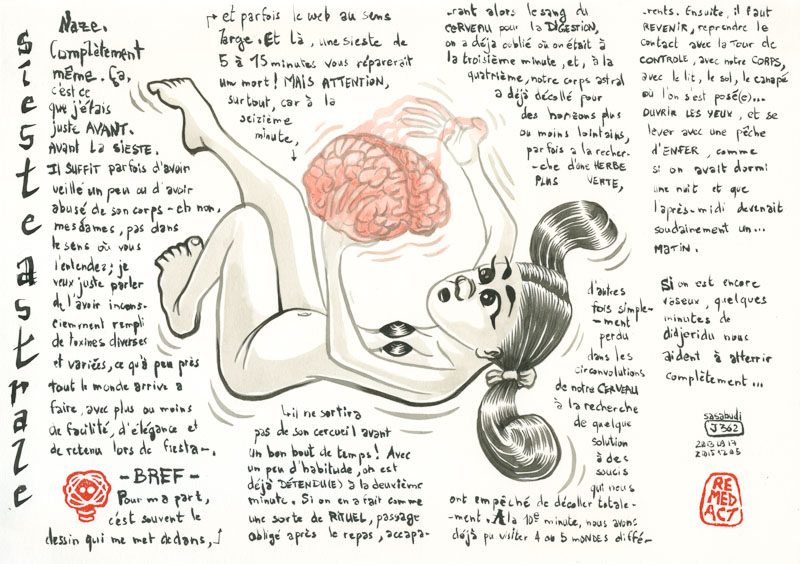 sieste astrale
Naze.
Complètement
même. Ça,
c'est ce
que j'étais
juste AVANT.
Avant la SIESTE.
Il SUFFIT parfois d'avoir
veillé un peu ou d'avoir
abusé de son corps - eh non,
mesdames, pas dans
le sens où vous
l'entendez; je
veux juste parler
de l'avoir incons-
ciemment rempli
de toxines diverses
et variées, ce qu'à peu près
tout le monde arrive à
faire, avec plus ou moins
de facilité, d'élégance et
de retenu lors de fiesta-.
- BREF -
Pour ma part,
c'est souvent le
dessin qui me met dedans,
et parfois le web au sens
large. Et là, une sieste de
5 à 15 minutes vous réparerait
un mort! MAIS ATTENTION,
surtout, car à la
seizième
minute,
il ne sortira
pas de son cercueil avant
un bon bout de temps! Avec
un peu d'habitude, on est
déjà DÉTENDU(E) à la deuxième
minute. Si on en a fait comme
une sorte de RITUEL, passage
obligé après le repas, accapa-
-rant alors le sang du
CERVEAU pour la DIGESTION,
on a déjà oublié où on était à
la troisième minute, et, à la
quatrième, notre corps astral
a déjà décollé pour
des horizons plus
ou moins lointains,
parfois à la recher-
-che d'une HERBE
PLUS VERTE,
d'autres
fois simple-
-ment
perdu
dans les
circonvolutions
de notre CERVEAU
à la recherche
de quelque
solution
à des
soucis
qui nous
ont empêché de décoller totale-
-ment. À la 10e minute, nous avons
déjà pu visiter 4 ou 5 MONDES diffé-
-rents. Ensuite, il faut
REVENIR, reprendre le
contact avec la Tour de
CONTROLE, avec notre CORPS,
avec le lit, le sol, le canapé
où l'on s'est posé(e)...
OUVRIR LES YEUX, et se
lever avec une pêche
d'ENFER, comme
si on avait dormi
une nuit et que
l'après-midi devenait
soudainement un...
MATIN.
Si on est encore
vaseux, quelques
minutes de
didjeridu nous
aident à atterrir
complètement...
sasabudi
J 362
2013 09 17
2015 12 05
RE
MED
ACT